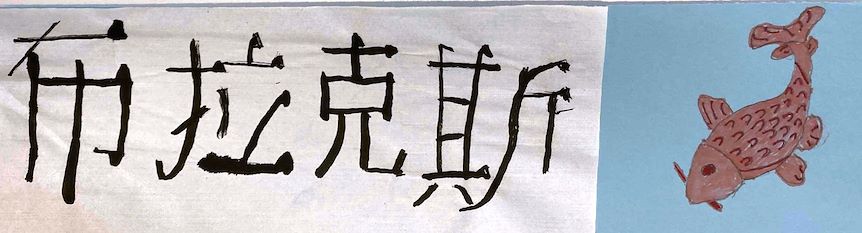 布拉克斯